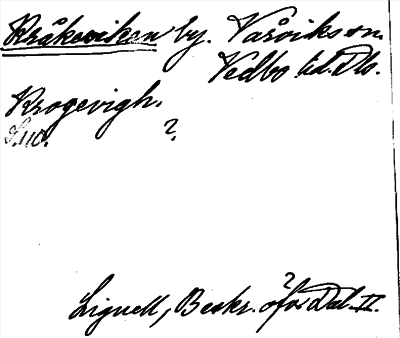 Kråkeviken by. Vårviks sn.
Vedbo hd. Ds.
Krogevigh.
S. 110. ?
?
Lignell, Beskr. öfver Dal. II.